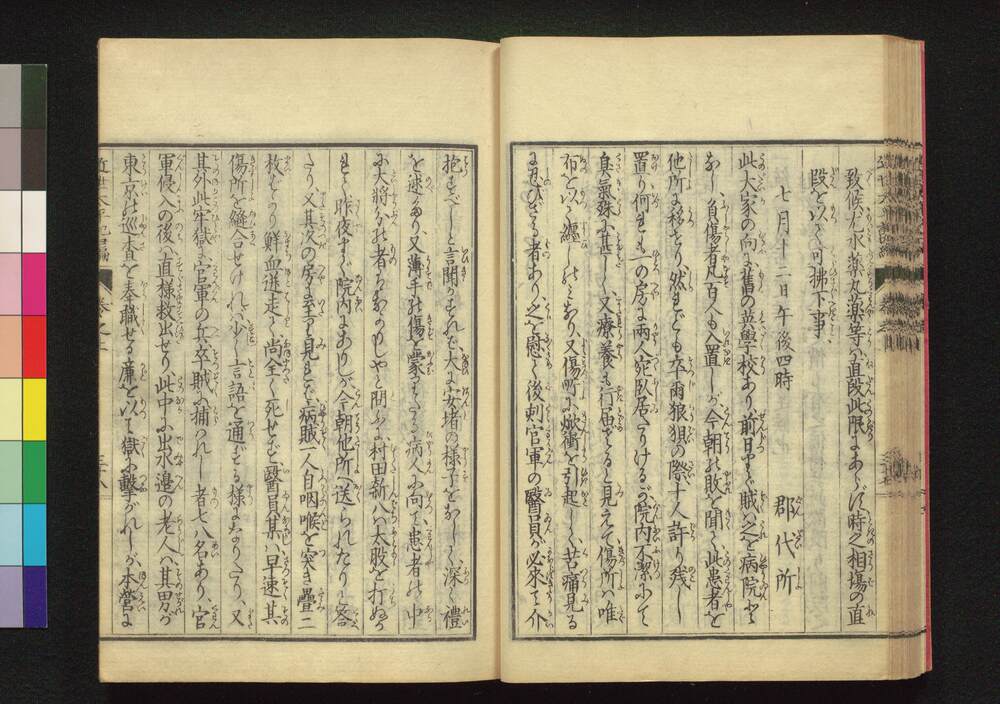 致候尤水藥丸藥等ハ直段此限にあらず時之相場の直
段を以て可拂下事、
七月十二日午後四時
郡代所
此大家の向に舊の英學校あり前日まで賊之を病院と
なし、負傷者凡百人も入置しが、今朝の敗を聞て、此患者を
他所に移せり、然れども卒爾狼狽の際、十人許り殘し
置り、何れも一の房に両人宛臥居たりけるが、院内不潔にして
臭氣殊に甚し、又療養も行届ざると見えて、傷所ハ唯
布を以て纏しのミあり、又傷所に焮衝を引起して、苦痛見る
に忍びざる者あり、之を慰して後刻官軍の醫員が必來て介
抱すべしと言聞かすれバ、大に安堵の様子をなして、深く禮
を述たり、又薄手の傷を蒙りたる病人に向て、患者の中
に大将分の者ハなかりしやと問ふに、村田新八ハ太股を打ぬか
れて、昨夜まで院内にありしが、今朝他所へ送られたりと答
たり、又其次の房に至り見れバ、病賊一人自咽喉を突き、疊二
枚ばかり鮮血迸走て、尚全く死せず、醫員某ハ早速其
傷所を縫合せけれバ、少し言語を通ずる様になりたり、又
其外此牢獄に官軍の兵卒賊に捕のれし者七八名あり、官
軍侵入の後、直様救出せり、此中に出水邉の老人ハ、其男が
東京の巡査を奉職せる廉を以て獄に繋がれしが、本營に
近世太平記 編 卷之二
三十八